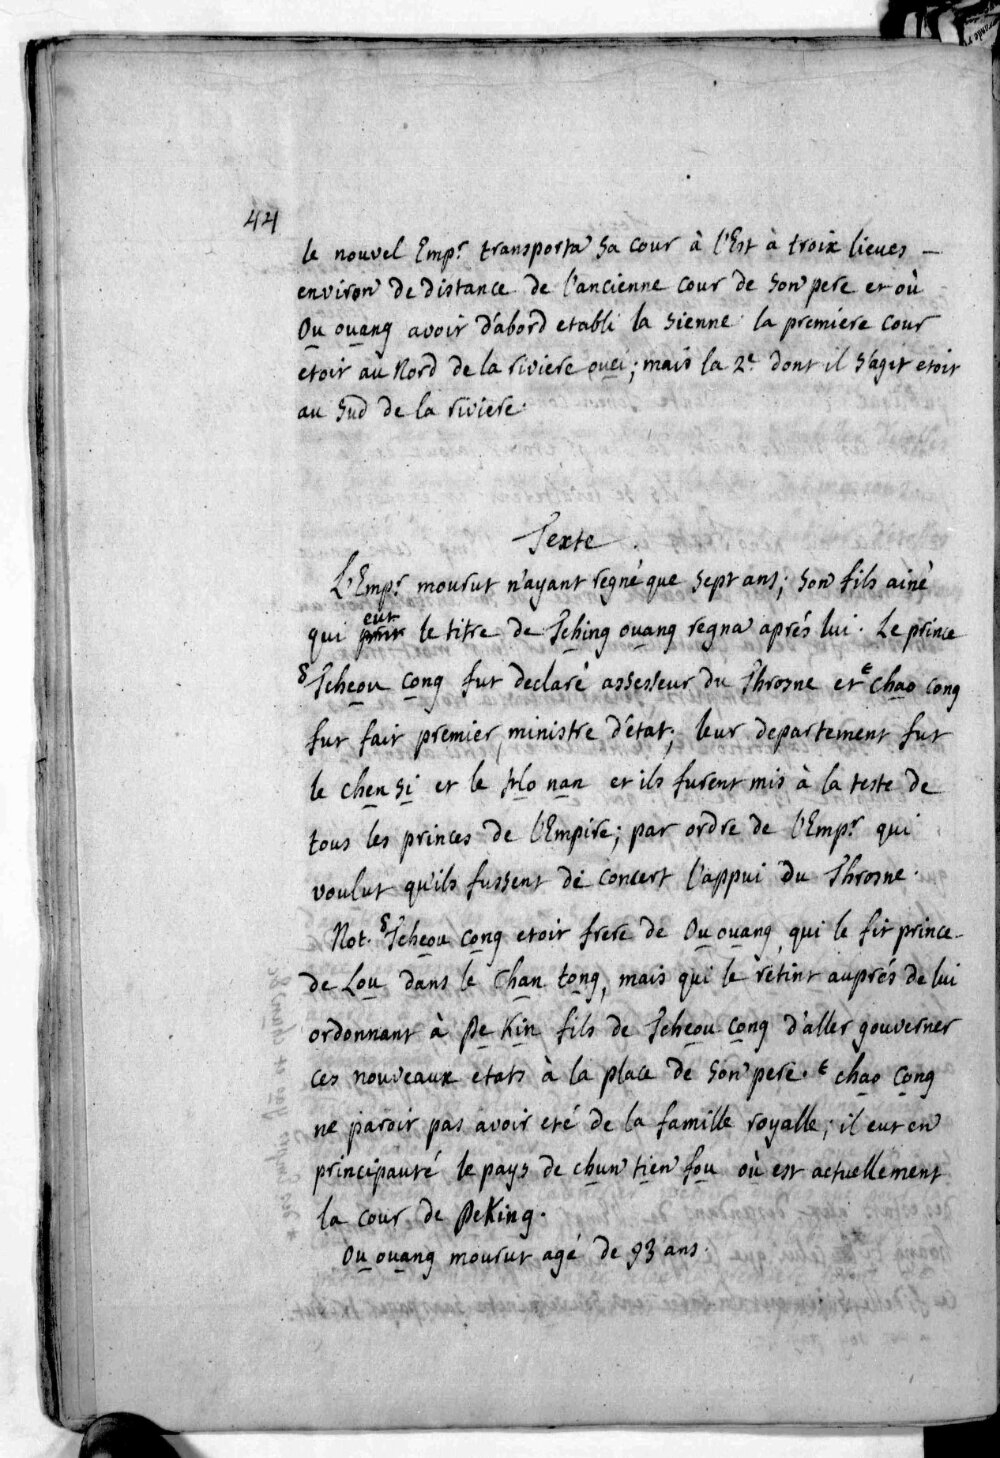 44
le nouvel Empr transporta sa cour à l'Est à troix lieues –
environ de distance de l'ancienne cour de son pere et où
Ou ouang avoit d'abord etabli la sienne la premiere cour
etoit au Nord de la riviere ouei; mais la 2e dont il s'agit etoit
au sud de la riviere.
Texte.
L'Empr mourut n'ayant regné que sept ans; son fils ainé
qui eut prit le titre de Tching ouang regna aprés lui. Le prince
δ Tcheou cong fut declaré assesseur du Throsne et ε chao cong
fut fait premier ministre d'état; leur departement fut
le chen si et le Ho nan et ils furent mis à la teste de
tous les princes de l'Empire; par ordre de l'Empr qui
voulut qu'ils fussent de concert l'appui du Throsne.
Not. δ Tcheou cong etoit frere de Ou ouang, qui le fit prince
de Lou dans le Chan tong, mais qui le retint auprés de lui
ordonnant à Pe Kin fils de Tcheou cong d'aller gouverner
ces nouveaux etats à la place de son pere. ε chao cong
ne paroit pas avoir eté de la famille royalle; il eut en
principauté le pays de chun tien fou où est actuellement
la cour de PeKing.
Ou ouang mourut agé de 93 ans.